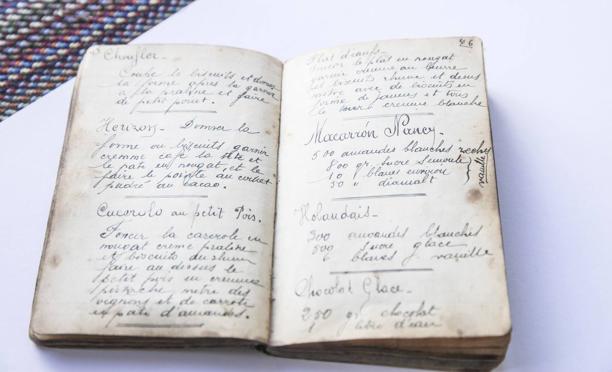 Choufler -
Couper le biscuits et donner
la forme après la garnir
a la praline et faire
de petit point.
Herizon - Donner la
forme au biscuits garnir
cremme cafe la tête et
le pate en nougat, et le
faire le pointe au cornet
pudré au cacao.
Cacerola au petit Pois.
Foncer la caserole en
nougat creme praliné
et biscuits du rhum
faire au dessus le
petit pois en cremme
pistache metre des
oignons et de carrote
en pate d'amandes.
46
Plat d'oeufs -
le plat en nougat
garnir creme au beurre
et biscuits rhum et desus
metre avec de biscuits en
forme de jaunes et tous
le cremme blanche
Macarrón Nancy -
500 amandes blanches seches
800 gr. sucre Semoule
10 " blancs environ
50 "
vanille
Holandais -
300 amandes blanches
500 sucre glace
6 blancs y vanille
Chocolat Glace -
250 gr chocolat
litre d'eau